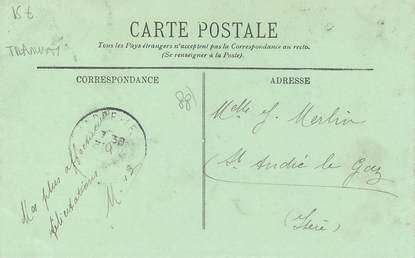 15€
TRAMWAY
CARTE POSTALE
Tous les Pays étrangers n'acceptent pas la Correspondance au recto.
(Se renseigner à la Poste).
CORRESPONDANCE
ADRESSE
Mes plus affectueuses
félicitations
Melle J. Merlin
St André le Gaz
(Isère)